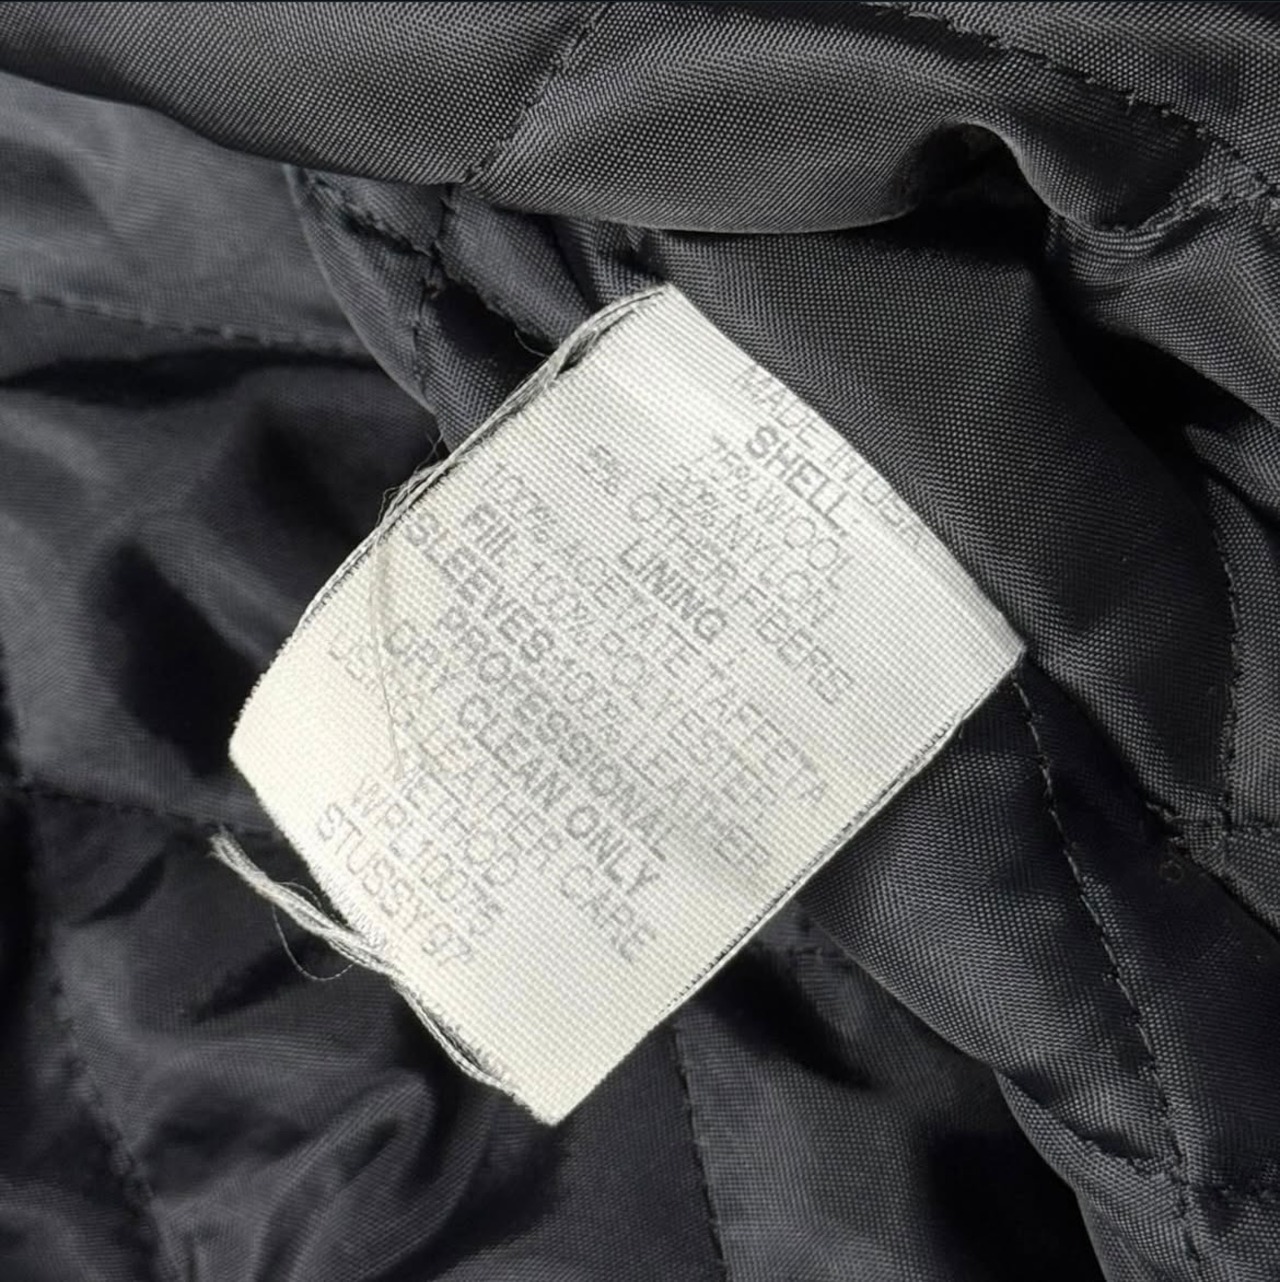 MADE IN USA
SHELL:
75% WOOL
20% NYLON
5% OTHER FIBERS
LINING
100% ACETATE TAFFETA
Fill: 100% POLYESTER
SLEEVES:100% LEATHER
PROFESSIONAL
DRY CLEAN ONLY
USING LEATHER CARE
METHOD
WPL10075
STUSSY 97